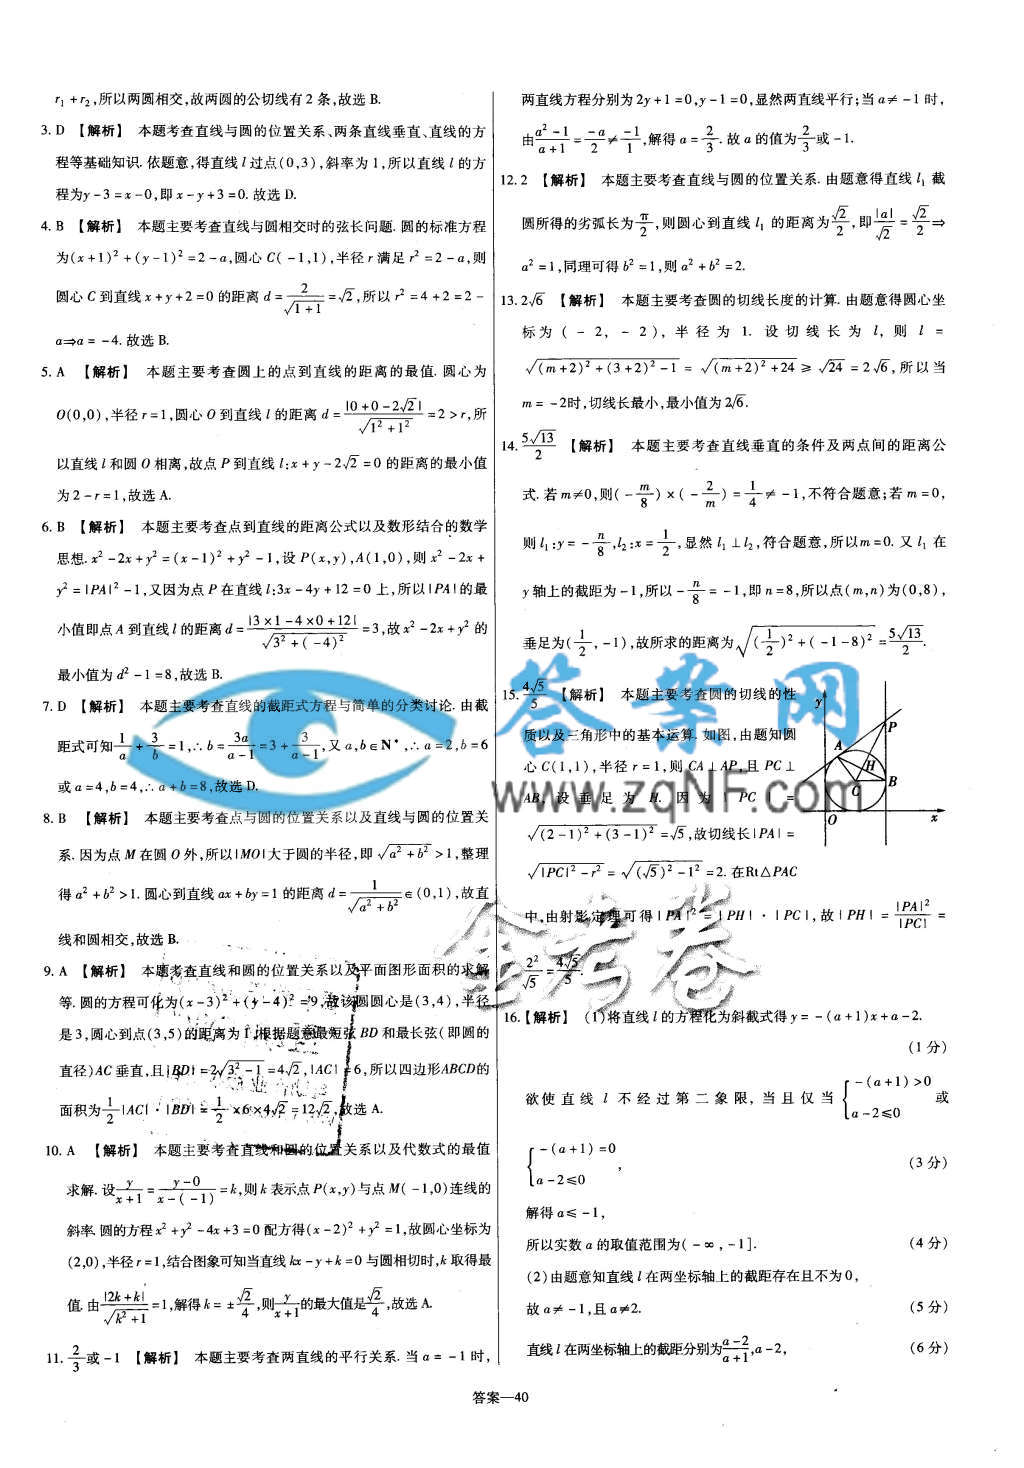 r₁+r₂,所以两圆相交,故两圆的公切线有2条,故选B.
3. D 【解析】 本题考查直线与圆的位置关系、两条直线垂直、直线的方
程等基础知识. 依题意,得直线l过点(0,3),斜率为1,所以直线l的方
程为y-3=x-0,即x-y+3=0. 故选D.
4. B 【解析】 本题主要考查直线与圆相交时的弦长问题. 圆的标准方程
为(x+1)²+(y-1)²=2-a,圆心C(-1,1),半径r满足r²=2-a,则
圆心C到直线x+y+2=0的距离d=2/√(1+1)=√2,所以r²=4+2=2-
a⇒a=-4. 故选B.
5. A 【解析】 本题主要考查圆上的点到直线的距离的最值. 圆心为
O(0,0),半径r=1,圆心O到直线l的距离d=|0+0-2√2|/√(1²+1²)=2>r,所
以直线l和圆O相离,故点P到直线l:x+y-2√2=0的距离的最小值
为2-r=1,故选A.
6. B 【解析】 本题主要考查点到直线的距离公式以及数形结合的数学
思想. x²-2x+y²=(x-1)²+y²-1,设P(x,y),A(1,0),则x²-2x+
y²=|PA|²-1,又因为点P在直线l:3x-4y+12=0上,所以|PA|的最
小值即点A到直线l的距离d=|3×1-4×0+12|/√(3²+(-4)²)=3,故x²-2x+y²的
最小值为d²-1=8,故选B.
7. D 【解析】 本题主要考查直线的截距式方程与简单的分类讨论. 由截
距式可知1/a+3/b=1,∴b=3a/(a-1)=3+3/(a-1),又a,b∈N*,∴a=2,b=6
或a=4,b=4,∴a+b=8,故选D.
8. B 【解析】 本题主要考查点与圆的位置关系以及直线与圆的位置关
系. 因为点M在圆O外,所以|MO|大于圆的半径,即√(a²+b²)>1,整理
得a²+b²>1. 圆心到直线ax+by=1的距离d=1/√(a²+b²)∈(0,1),故直
线和圆相交,故选B.
9. A 【解析】 本题考查直线和圆的位置关系以及平面图形面积的求解
等. 圆的方程可化为(x-3)²+(y-4)²=9,故该圆圆心是(3,4),半径
是3,圆心到点(3,5)的距离为1,根据题意最短弦BD和最长弦(即圆的
直径)AC垂直,且|BD|=2√(3²-1)=4√2,|AC|=6,所以四边形ABCD的
面积为1/2|AC|·|BD|=1/2×6×4√2=12√2,故选A.
10. A 【解析】 本题主要考查直线和圆的位置关系以及代数式的最值
求解. 设y/(x+1)=(y-0)/(x-(-1))=k,则k表示点P(x,y)与点M(-1,0)连线的
斜率. 圆的方程x²+y²-4x+3=0配方得(x-2)²+y²=1,故圆心坐标为
(2,0),半径r=1,结合图象可知当直线kx-y+k=0与圆相切时,k取得最
值. 由|2k+k|/√(k²+1)=1,解得k=±√2/4,则y/(x+1)的最大值是√2/4,故选A.
11. 2/3或-1 【解析】 本题主要考查两直线的平行关系. 当a=-1时,
两直线方程分别为2y+1=0,y-1=0,显然两直线平行;当a≠-1时,
由(a²-1)/(a+1)=-a/2≠-1/1,解得a=2/3. 故a的值为2/3或-1.
12. 2 【解析】 本题主要考查直线与圆的位置关系. 由题意得直线l₁截
圆所得的劣弧长为π/2,则圆心到直线l₁的距离为√2/2,即|a|/√2=√2/2⇒
a²=1,同理可得b²=1,则a²+b²=2.
13. 2√6 【解析】 本题主要考查圆的切线长度的计算. 由题意得圆心坐
标为(-2,-2),半径为1. 设切线长为l,则l=
√((m+2)²+(3+2)²-1)=√((m+2)²+24)≥√24=2√6,所以当
m=-2时,切线长最小,最小值为2√6.
14. 5√13/2 【解析】 本题主要考查直线垂直的条件及两点间的距离公
式. 若m≠0,则(-m/8)×(-2/m)=1/4≠-1,不符合题意;若m=0,
则l₁:y=-n/8,l₂:x=1/2,显然l₁⊥l₂,符合题意,所以m=0. 又l₁在
y轴上的截距为-1,所以-n/8=-1,即n=8,所以点(m,n)为(0,8),
垂足为(1/2,-1),故所求的距离为√((1/2)²+(-1-8)²)=5√13/2.
15. 4√5/5 【解析】 本题主要考查圆的切线的性
质以及三角形中的基本运算. 如图,由题知圆
心C(1,1),半径r=1,则CA⊥AP,且PC⊥
AB,设垂足为H. 因为|PC|=
√((2-1)²+(3-1)²)=√5,故切线长|PA|=
√(|PC|²-r²)=√((√5)²-1²)=2. 在Rt△PAC
中,由射影定理可得|PA|²=|PH|·|PC|,故|PH|=|PA|²/|PC|=
2²/√5=4√5/5.
y
P
A
H
B
C
O
x
16. 【解析】 (1)将直线l的方程化为斜截式得y=-(a+1)x+a-2.
(1分)
欲使直线l不经过第二象限,当且仅当{-(a+1)>0 a-2≤0 或
{-(a+1)=0 a-2≤0, (3分)
解得a≤-1,
所以实数a的取值范围为(-∞,-1]. (4分)
(2)由题意知直线l在两坐标轴上的截距存在且不为0,
故a≠-1,且a≠2. (5分)
直线l在两坐标轴上的截距分别为(a-2)/(a+1),a-2, (6分)
答案—40
答案网
www.zqNF.com
金考卷